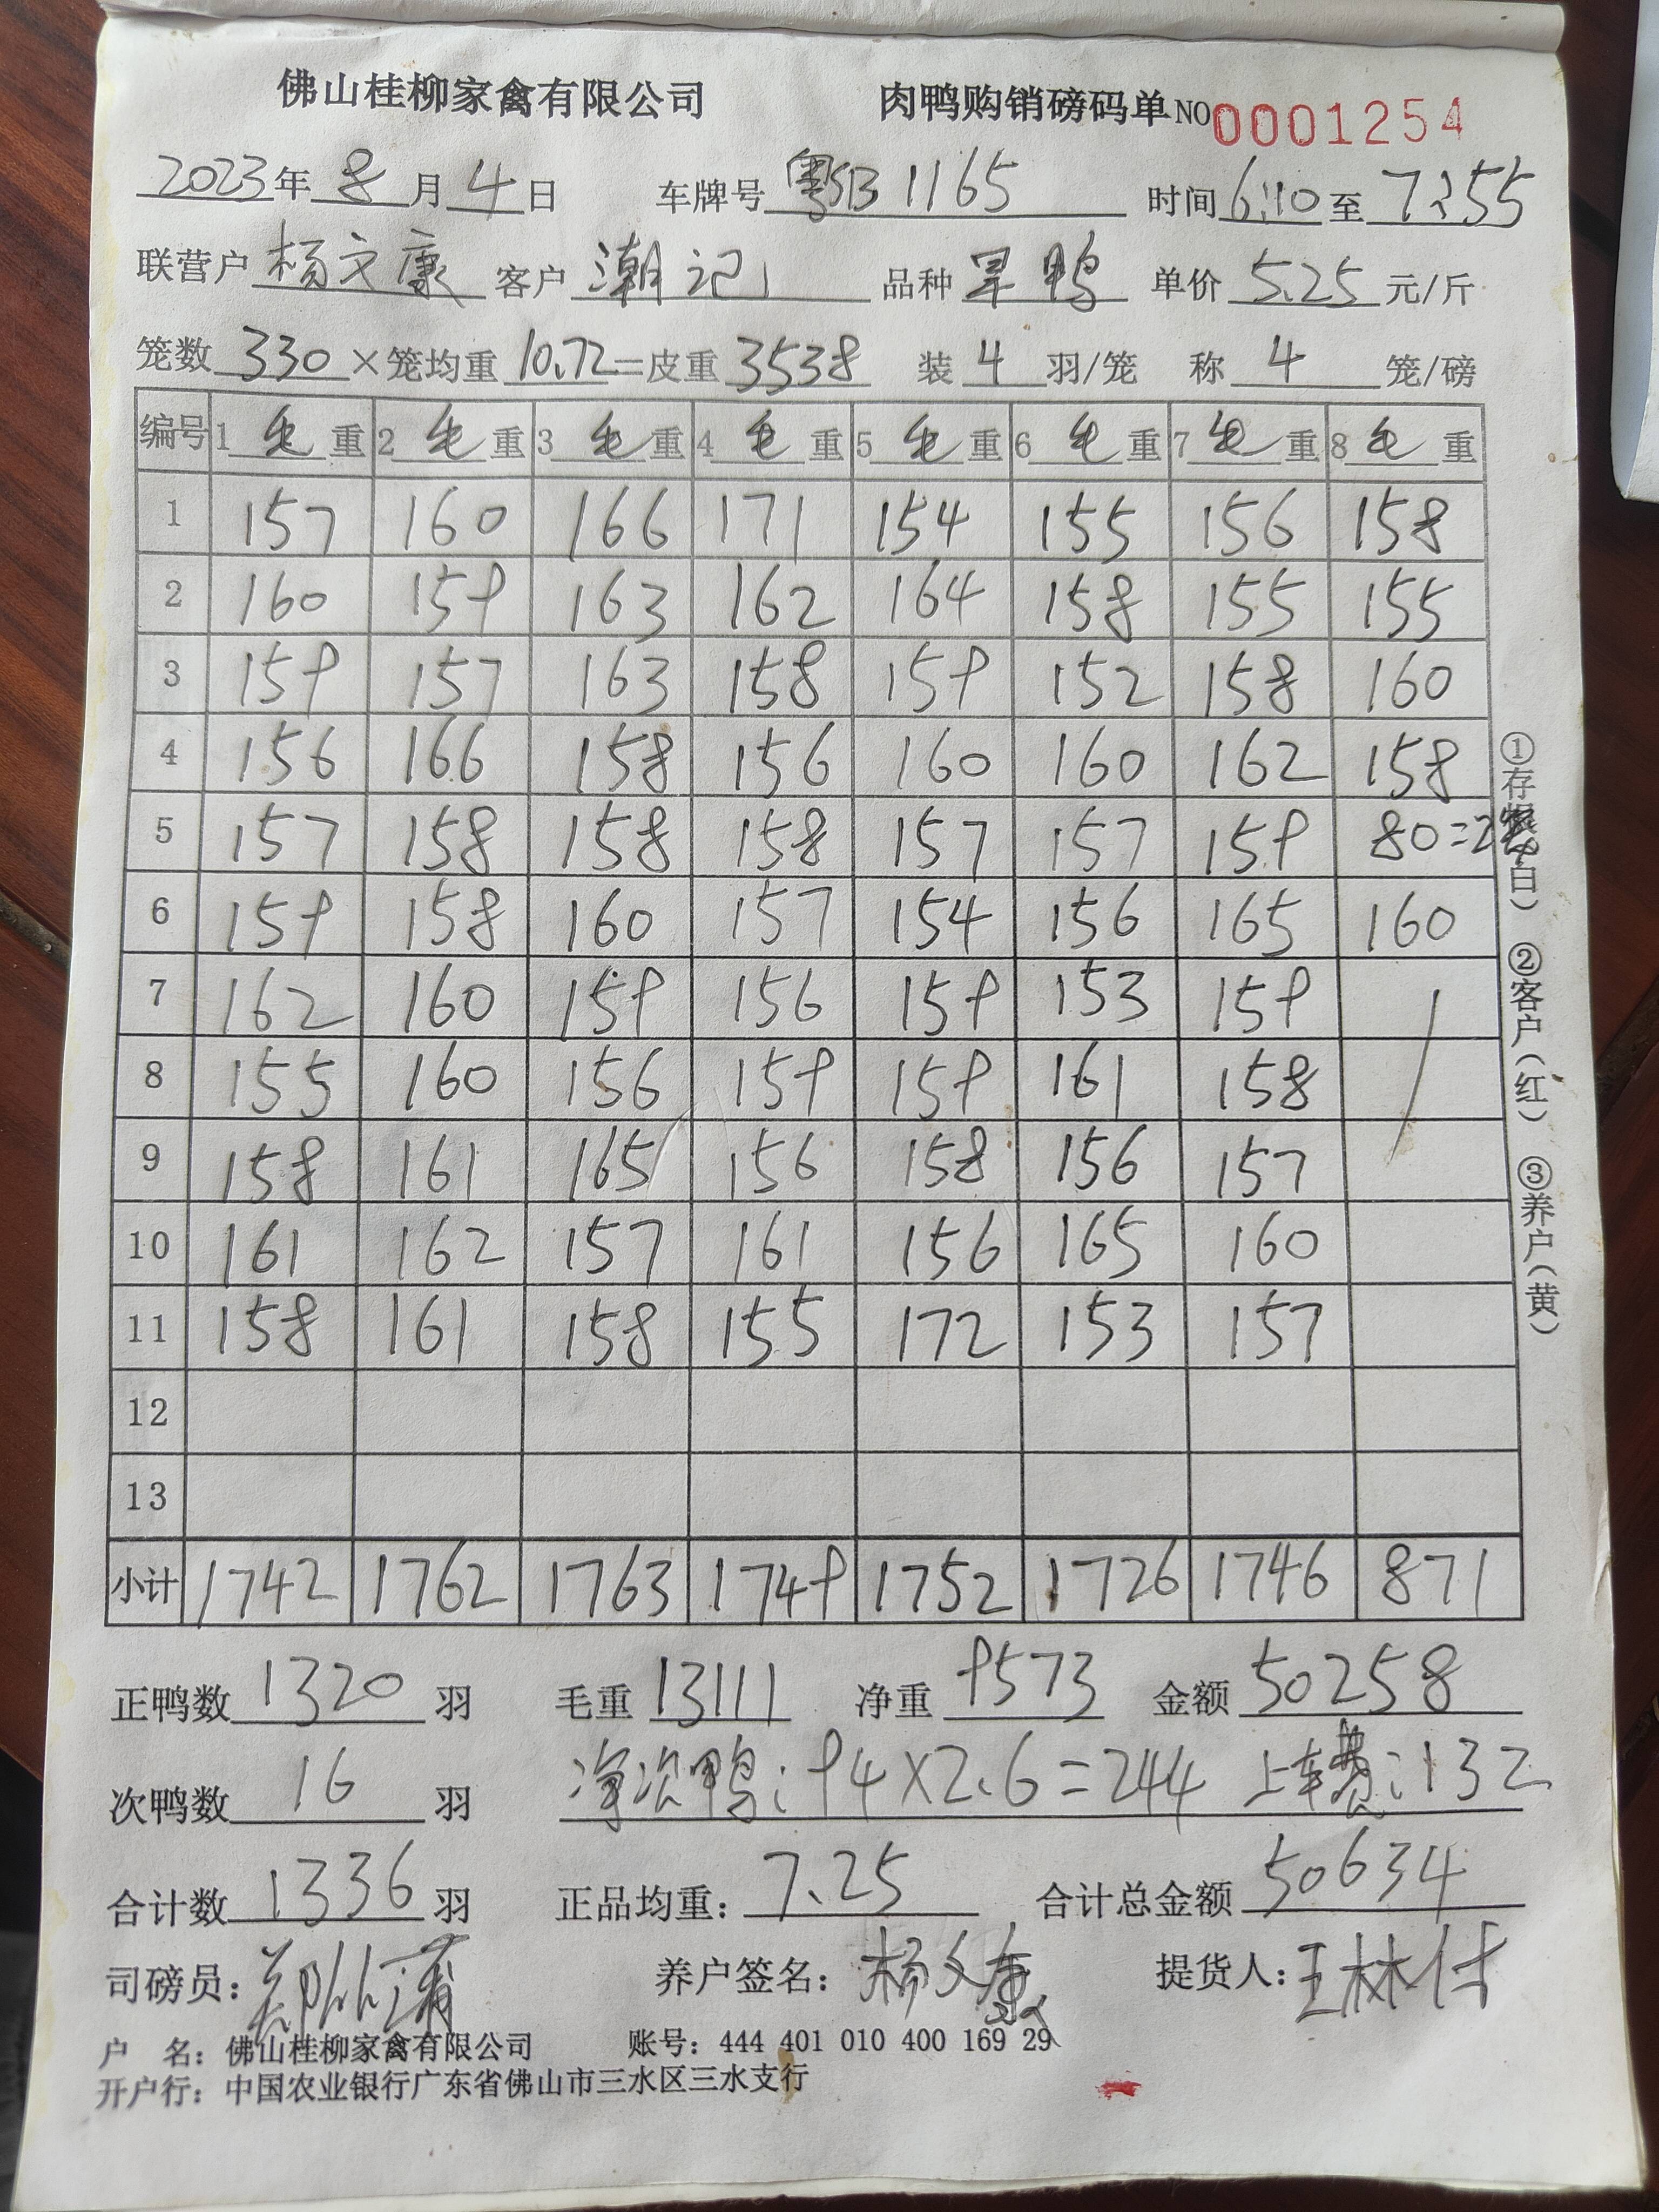 佛山桂柳家禽有限公司 肉鸭购销磅码单 NO 0001254
2023年 8 月 4 日 车牌号 粤SB1165 时间 6:10 至 7:55
联营户 杨文康 客户 潮记 品种 旱鸭 单价 5.25 元/斤
笼数 330 ×笼均重 10.72 =皮重 3538 装 4 羽/笼 称 4 笼/磅
编号 1 毛 重 2 毛 重 3 毛 重 4 毛 重 5 毛 重 6 毛 重 7 毛 重 8 毛 重
1 157 160 166 171 154 155 156 158
2 160 159 163 162 164 158 155 155
3 159 157 163 158 159 152 158 160
4 156 166 158 156 160 160 162 158
5 157 158 158 158 157 157 159 80=2
6 159 158 160 157 154 156 165 160
7 162 160 159 156 159 153 159
8 155 160 156 159 159 161 158
9 158 161 165 156 158 156 157
10 161 162 157 161 156 165 160
11 158 161 158 155 172 153 157
12
13
小计 1742 1762 1763 1749 1752 1726 1746 871
正鸭数 1320 羽 毛重 13111 净重 9573 金额 50258
次鸭数 16 羽 净次鸭:94×2.6=244 上车费:132
合计数 1336 羽 正品均重: 7.25 合计总金额 50634
司磅员: 养户签名: 杨文康 提货人: 王林仕
户 名: 佛山桂柳家禽有限公司 账号: 444 401 010 400 169 29
开户行: 中国农业银行广东省佛山市三水区三水支行
①存根(白) ②客户(红) ③养户(黄)